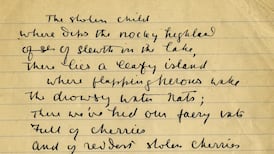 The stolen child
where dips the rocky highland
of sleuth in the lake,
There lies a leafy island
where flapping herons wake
The drowsy water rats;
There we've hid our faery vats
Full of cherries
And of reddest stolen cherries